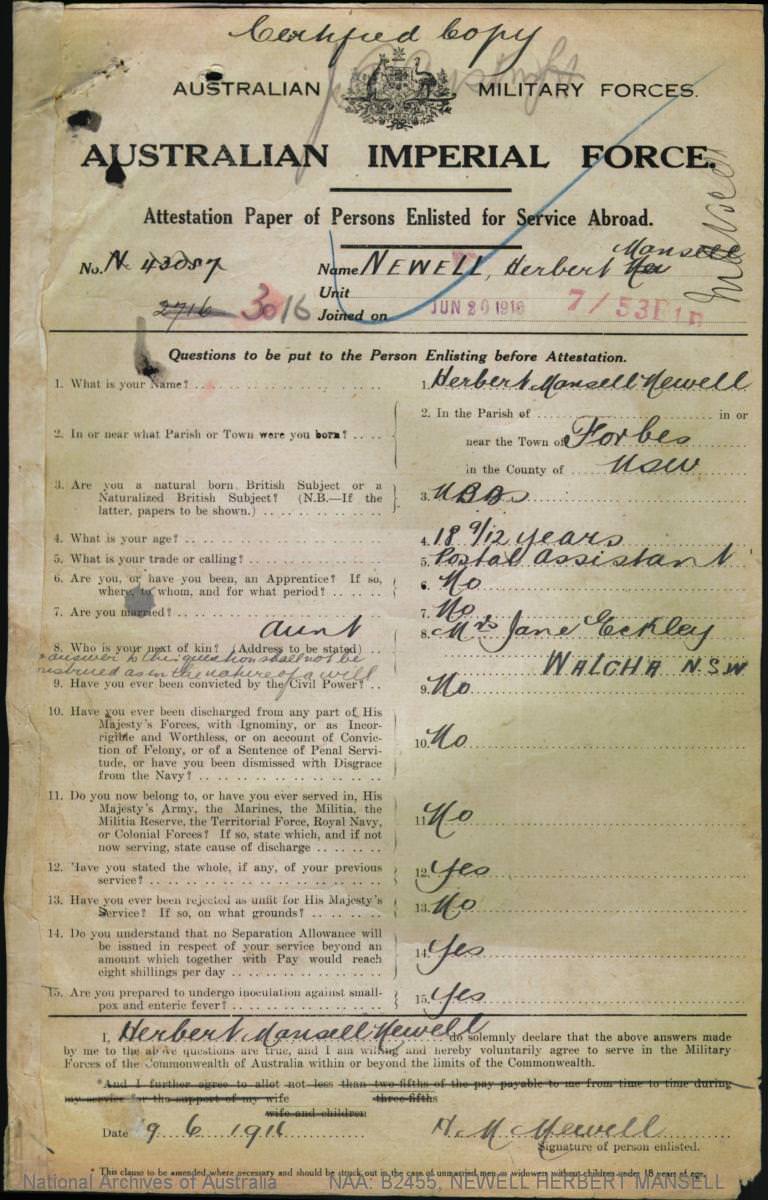 Certified Copy
AUSTRALIAN MILITARY FORCES.
AUSTRALIAN IMPERIAL FORCE.
Attestation Paper of Persons Enlisted for Service Abroad.
No. N 43057
Name NEWELL, Herbert Mansell
Mansell
Unit
2716 3016
Joined on JUN 20 1916 7/53
Questions to be put to the Person Enlisting before Attestation.
1. What is your Name? 1. Herbert Mansell Newell
2. In or near what Parish or Town were you born? 2. In the Parish of in or
near the Town of Forbes
in the County of NSW
3. Are you a natural born British Subject or a
Naturalized British Subject? (N.B.—If the
latter, papers to be shown.) 3. NBBs
4. What is your age? 4. 18 9/12 years
5. What is your trade or calling? 5. Postal Assistant
6. Are you, or have you been, an Apprentice? If so,
where, to whom, and for what period? 6. No
7. Are you married? 7. No
Aunt
8. Who is your next of kin? (Address to be stated) 8. Mrs Jane Eckley
WALCHA N.S.W
answer to this question shall not be
construed as in the nature of a will
9. Have you ever been convicted by the Civil Power? 9. No
10. Have you ever been discharged from any part of His
Majesty's Forces, with Ignominy, or as Incor-
rigible and Worthless, or on account of Convic-
tion of Felony, or of a Sentence of Penal Servi-
tude, or have you been dismissed with Disgrace
from the Navy? 10. No
11. Do you now belong to, or have you ever served in, His
Majesty's Army, the Marines, the Militia, the
Militia Reserve, the Territorial Force, Royal Navy,
or Colonial Forces? If so, state which, and if not
now serving, state cause of discharge 11. No
12. Have you stated the whole, if any, of your previous
service? 12. Yes
13. Have you ever been rejected as unfit for His Majesty's
Service? If so, on what grounds? 13. No
14. Do you understand that no Separation Allowance will
be issued in respect of your service beyond an
amount which together with Pay would reach
eight shillings per day 14. Yes
15. Are you prepared to undergo inoculation against small-
pox and enteric fever? 15. Yes
I, Herbert Mansell Newell do solemnly declare that the above answers made
by me to the above questions are true, and I am willing and hereby voluntarily agree to serve in the Military
Forces of the Commonwealth of Australia within or beyond the limits of the Commonwealth.
*And I further agree to allot not less than two-fifths of the pay payable to me from time to time during
three-fifths
my service for the support of my wife
wife and children
Date 9 6 1916 H. M Newell
Signature of person enlisted.
* This clause to be amended where necessary and should be struck out in the case of unmarried men or widowers without children under 18 years of age.
National Archives of Australia NAA: B2455, NEWELL HERBERT MANSELL